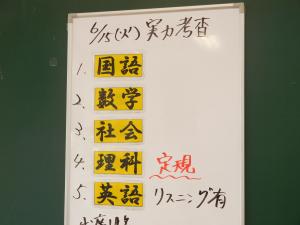 6/15(火)実力考査
1. 国語
2. 数学
3. 社会
4. 理科 定規
5. 英語 リスニング有